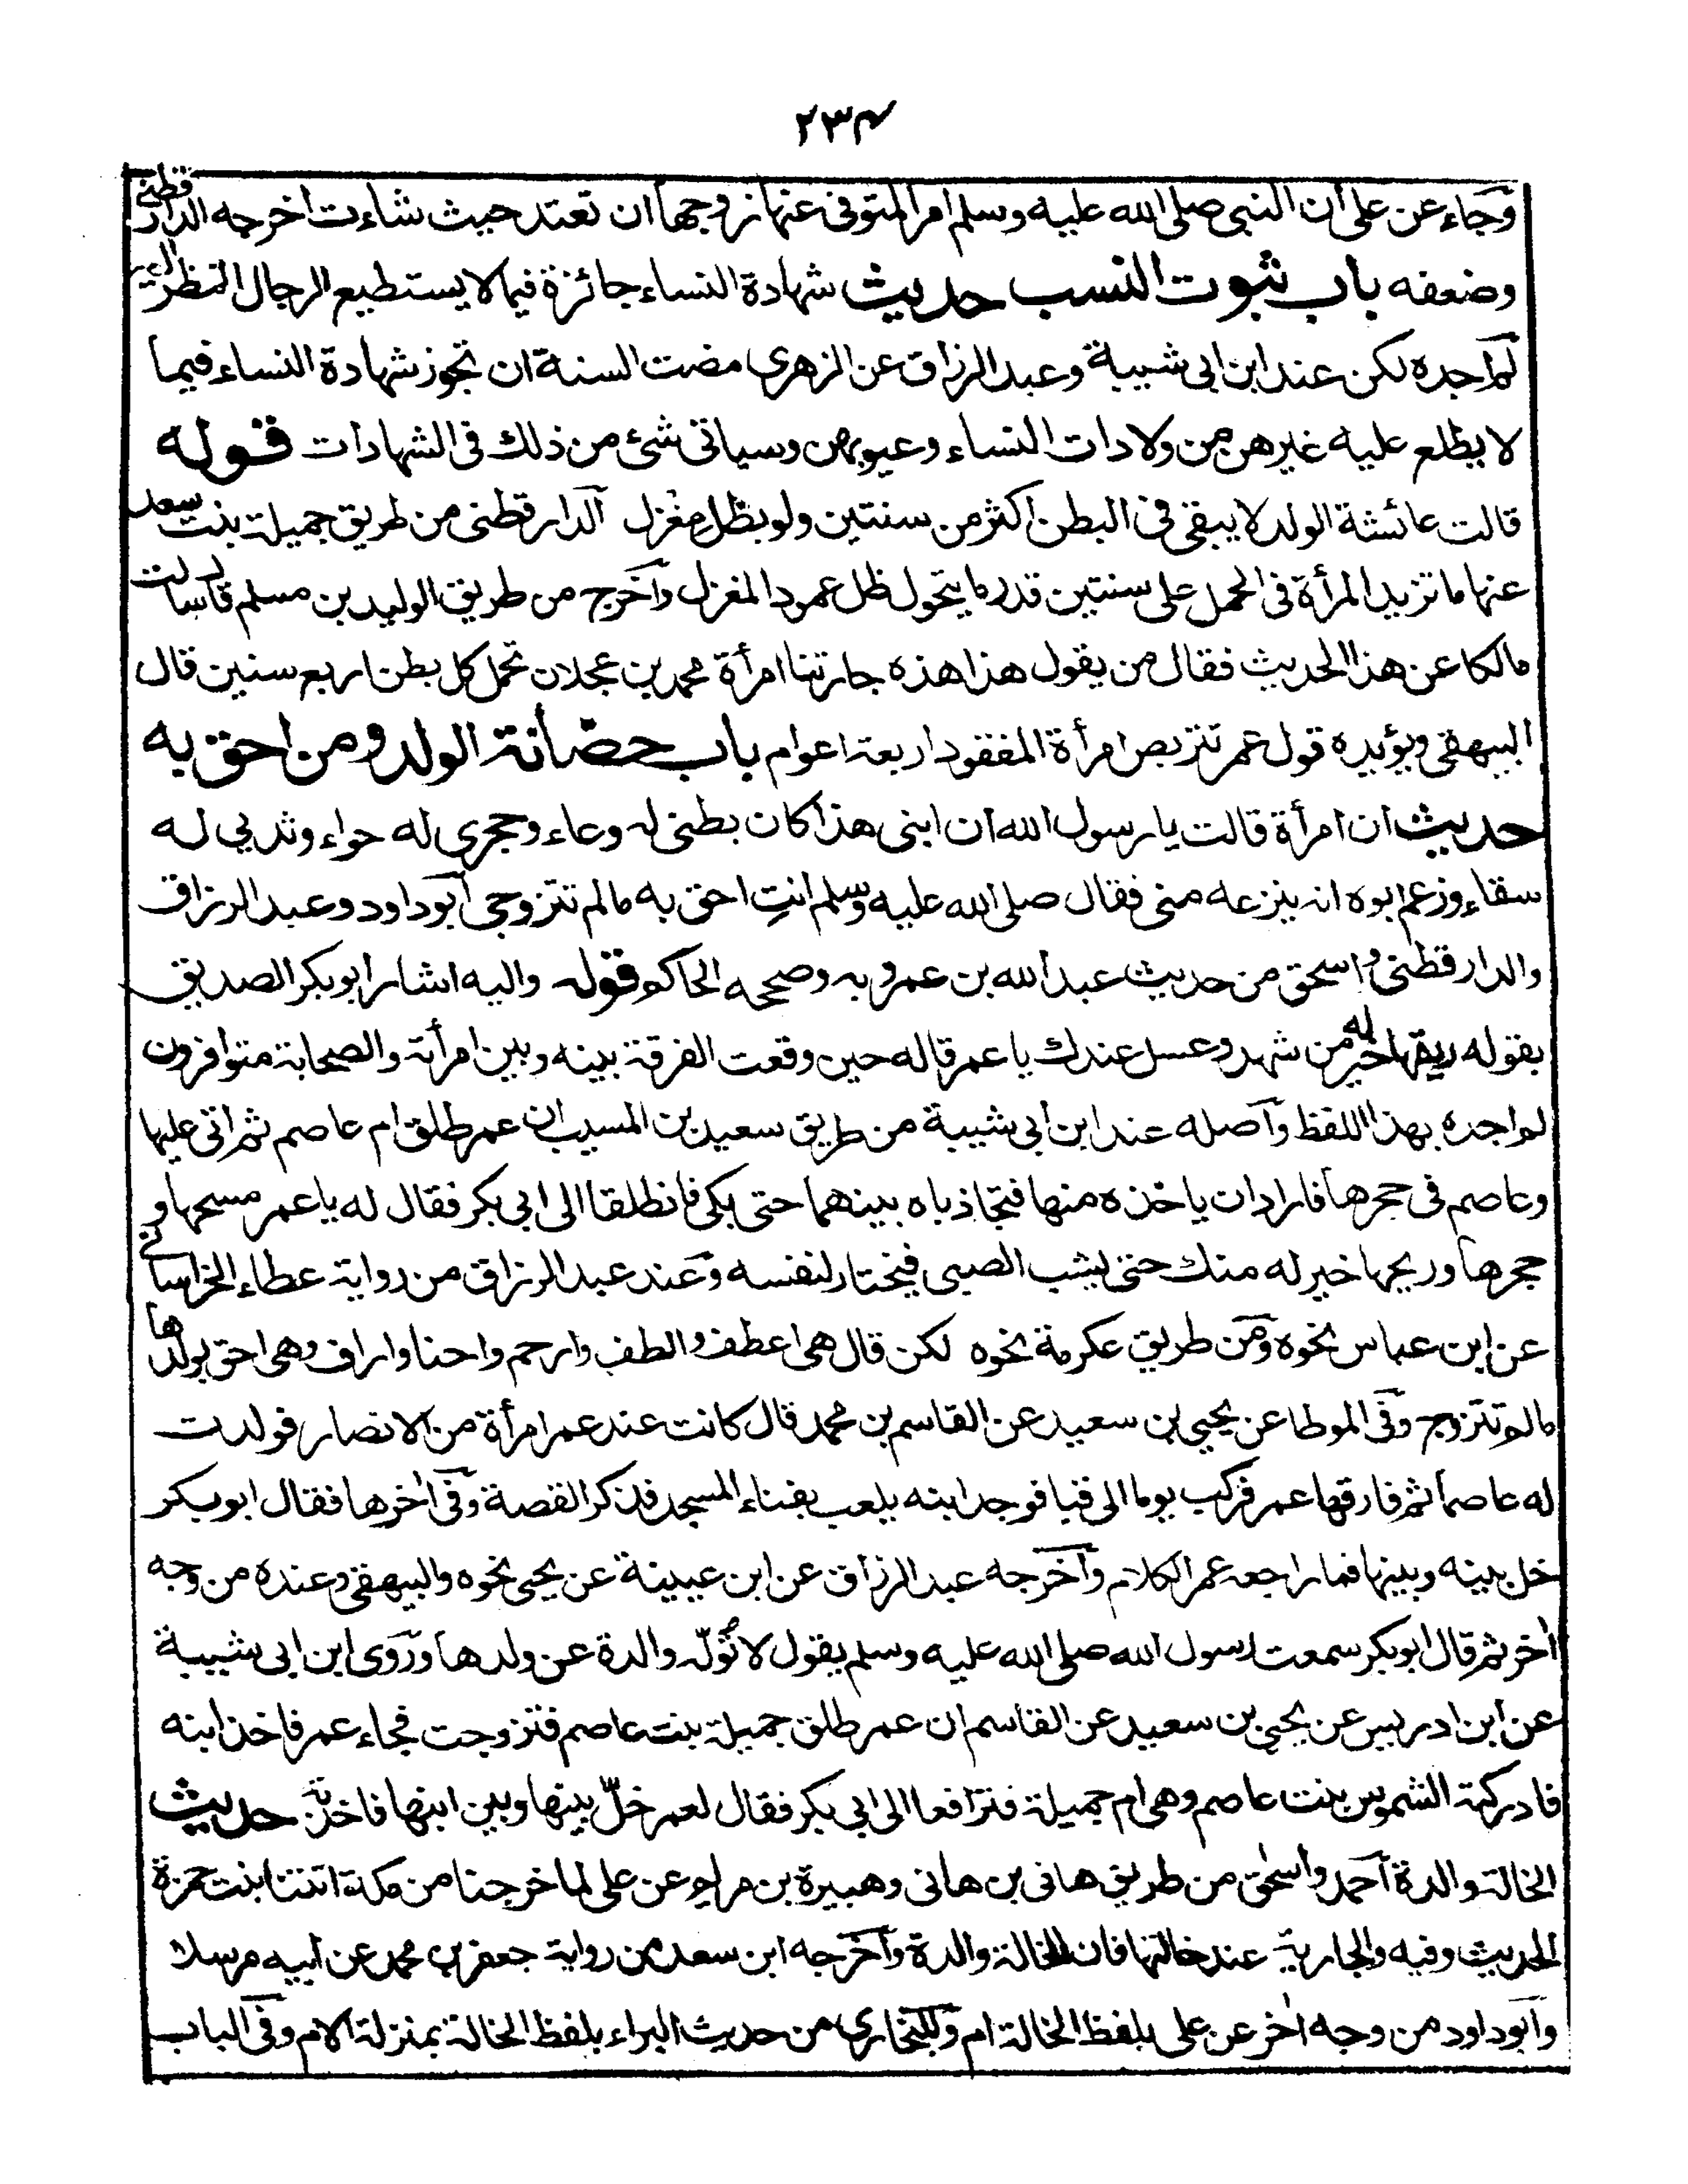 ٢٣٤
وجاء عن على أن النبى صلى الله عليه وسلم امر المتوفى عنها زوجها ان تعتد حيث شاءت اخرجه الدارقطنى
وضعفه باب ثبوت النسب حديث شهادة النساء جائزة فيما لا يستطيع الرجال النظر اليه
لم اجده لكن عند ابن ابى شيبة وعبد الرزاق عن الزهرى مضت السنة ان تجوز شهادة النساء فيما
لا يطلع عليه غيرهن من ولادات النساء وعيوبهن وسياتى شئ من ذلك فى الشهادات قوله
قالت عائشة الولد لا يبقى فى البطن اكثر من سنتين ولو بظل مغزل الدارقطنى من طريق جميلة بنت سعد
عنها ما تزيد المرأة فى الحمل على سنتين قدر ما يتحول ظل عمود المغزل وأخرج من طريق الوليد بن مسلم سالت
مالكا عن هذا الحديث فقال من يقول هذا هذه جارتنا امرأة محمد بن عجلان تحمل كل بطن اربع سنين قال
البيهقى ويؤيده قول عمر تتربص امرأة المفقود اربعة اعوام باب حضانة الولد ومن احق به
حديث ان امرأة قالت يا رسول الله ان ابنى هذا كان بطنى له وعاء وحجرى له حواء وثديى له
سقاء وزعم ابوه انه ينزعه منى فقال صلى الله عليه وسلم انتِ احق به مالم تتزوجى أبوداود وعبد الرزاق
والدارقطنى واسحق من حديث عبد الله بن عمرو به وصححه الحاكم قوله واليه اشار ابو بكر الصديق
بقوله ريقها خير له من شهد وعسل عندك يا عمر قاله حين وقعت الفرقة بينه وبين امرأته والصحابة متوافرون
لم اجده بهذا اللفظ وأصله عند ابن أبى شيبة من طريق سعيد بن المسيب ان عمر طلق ام عاصم ثم اتى عليها
وعاصم فى حجرها فاراد ان ياخذه منها فتجاذباه بينهما حتى بكى فانطلقا الى ابى بكر فقال له يا عمر مسحها و
حجرها وريحها خير له منك حتى يشب الصبى فيختار لنفسه وعند عبد الرزاق من رواية عطاء الخراسانى
عن ابن عباس نحوه ومن طريق عكرمة نحوه لكن قال هى اعطف والطف وارحم واحنا واراف وهى احق بولدها
مالم تتزوج وفى الموطا عن يحيى بن سعيد عن القاسم بن محمد قال كانت عند عمر امرأة من الانصار فولدت
له عاصما ثم فارقها عمر فركب يوما الى قبا فوجد ابنه يلعب بفناء المسجد فذكر القصة وفى أخرها فقال ابو بكر
خل بينه وبينها فما راجعه عمر الكلام وأخرجه عبد الرزاق عن ابن عيينة عن يحيى نحوه والبيهقى وعنده من وجه
أخر ثم قال ابو بكر سمعت رسول الله صلى الله عليه وسلم يقول لا تُولّه والدة عن ولدها وروى ابن ابى شيبة
عن ابن ادريس عن يحيى بن سعيد عن القاسم ان عمر طلق جميلة بنت عاصم فتزوجت فجاء عمر فاخذ ابنه
فادركته الشموس بنت عاصم وهى ام جميلة فترافعا الى ابى بكر فقال لعمر خلّ بينها وبين ابنها فاخذته حديث
الخالة والدة أحمد واسحٰق من طريق هانى بن هانى وهبيرة بن مريم عن على لما خرجنا من مكة اتتنا بنت حمزة
الحديث وفيه والجارية عند خالتها فان الخالة والدة وأخرجه ابن سعد من رواية جعفر بن محمد عن ابيه مرسلا
وأبوداود من وجه أخر عن على بلفظ الخالة ام وللبخارى من حديث البراء بلفظ الخالة بمنزلة الام وفى الباب